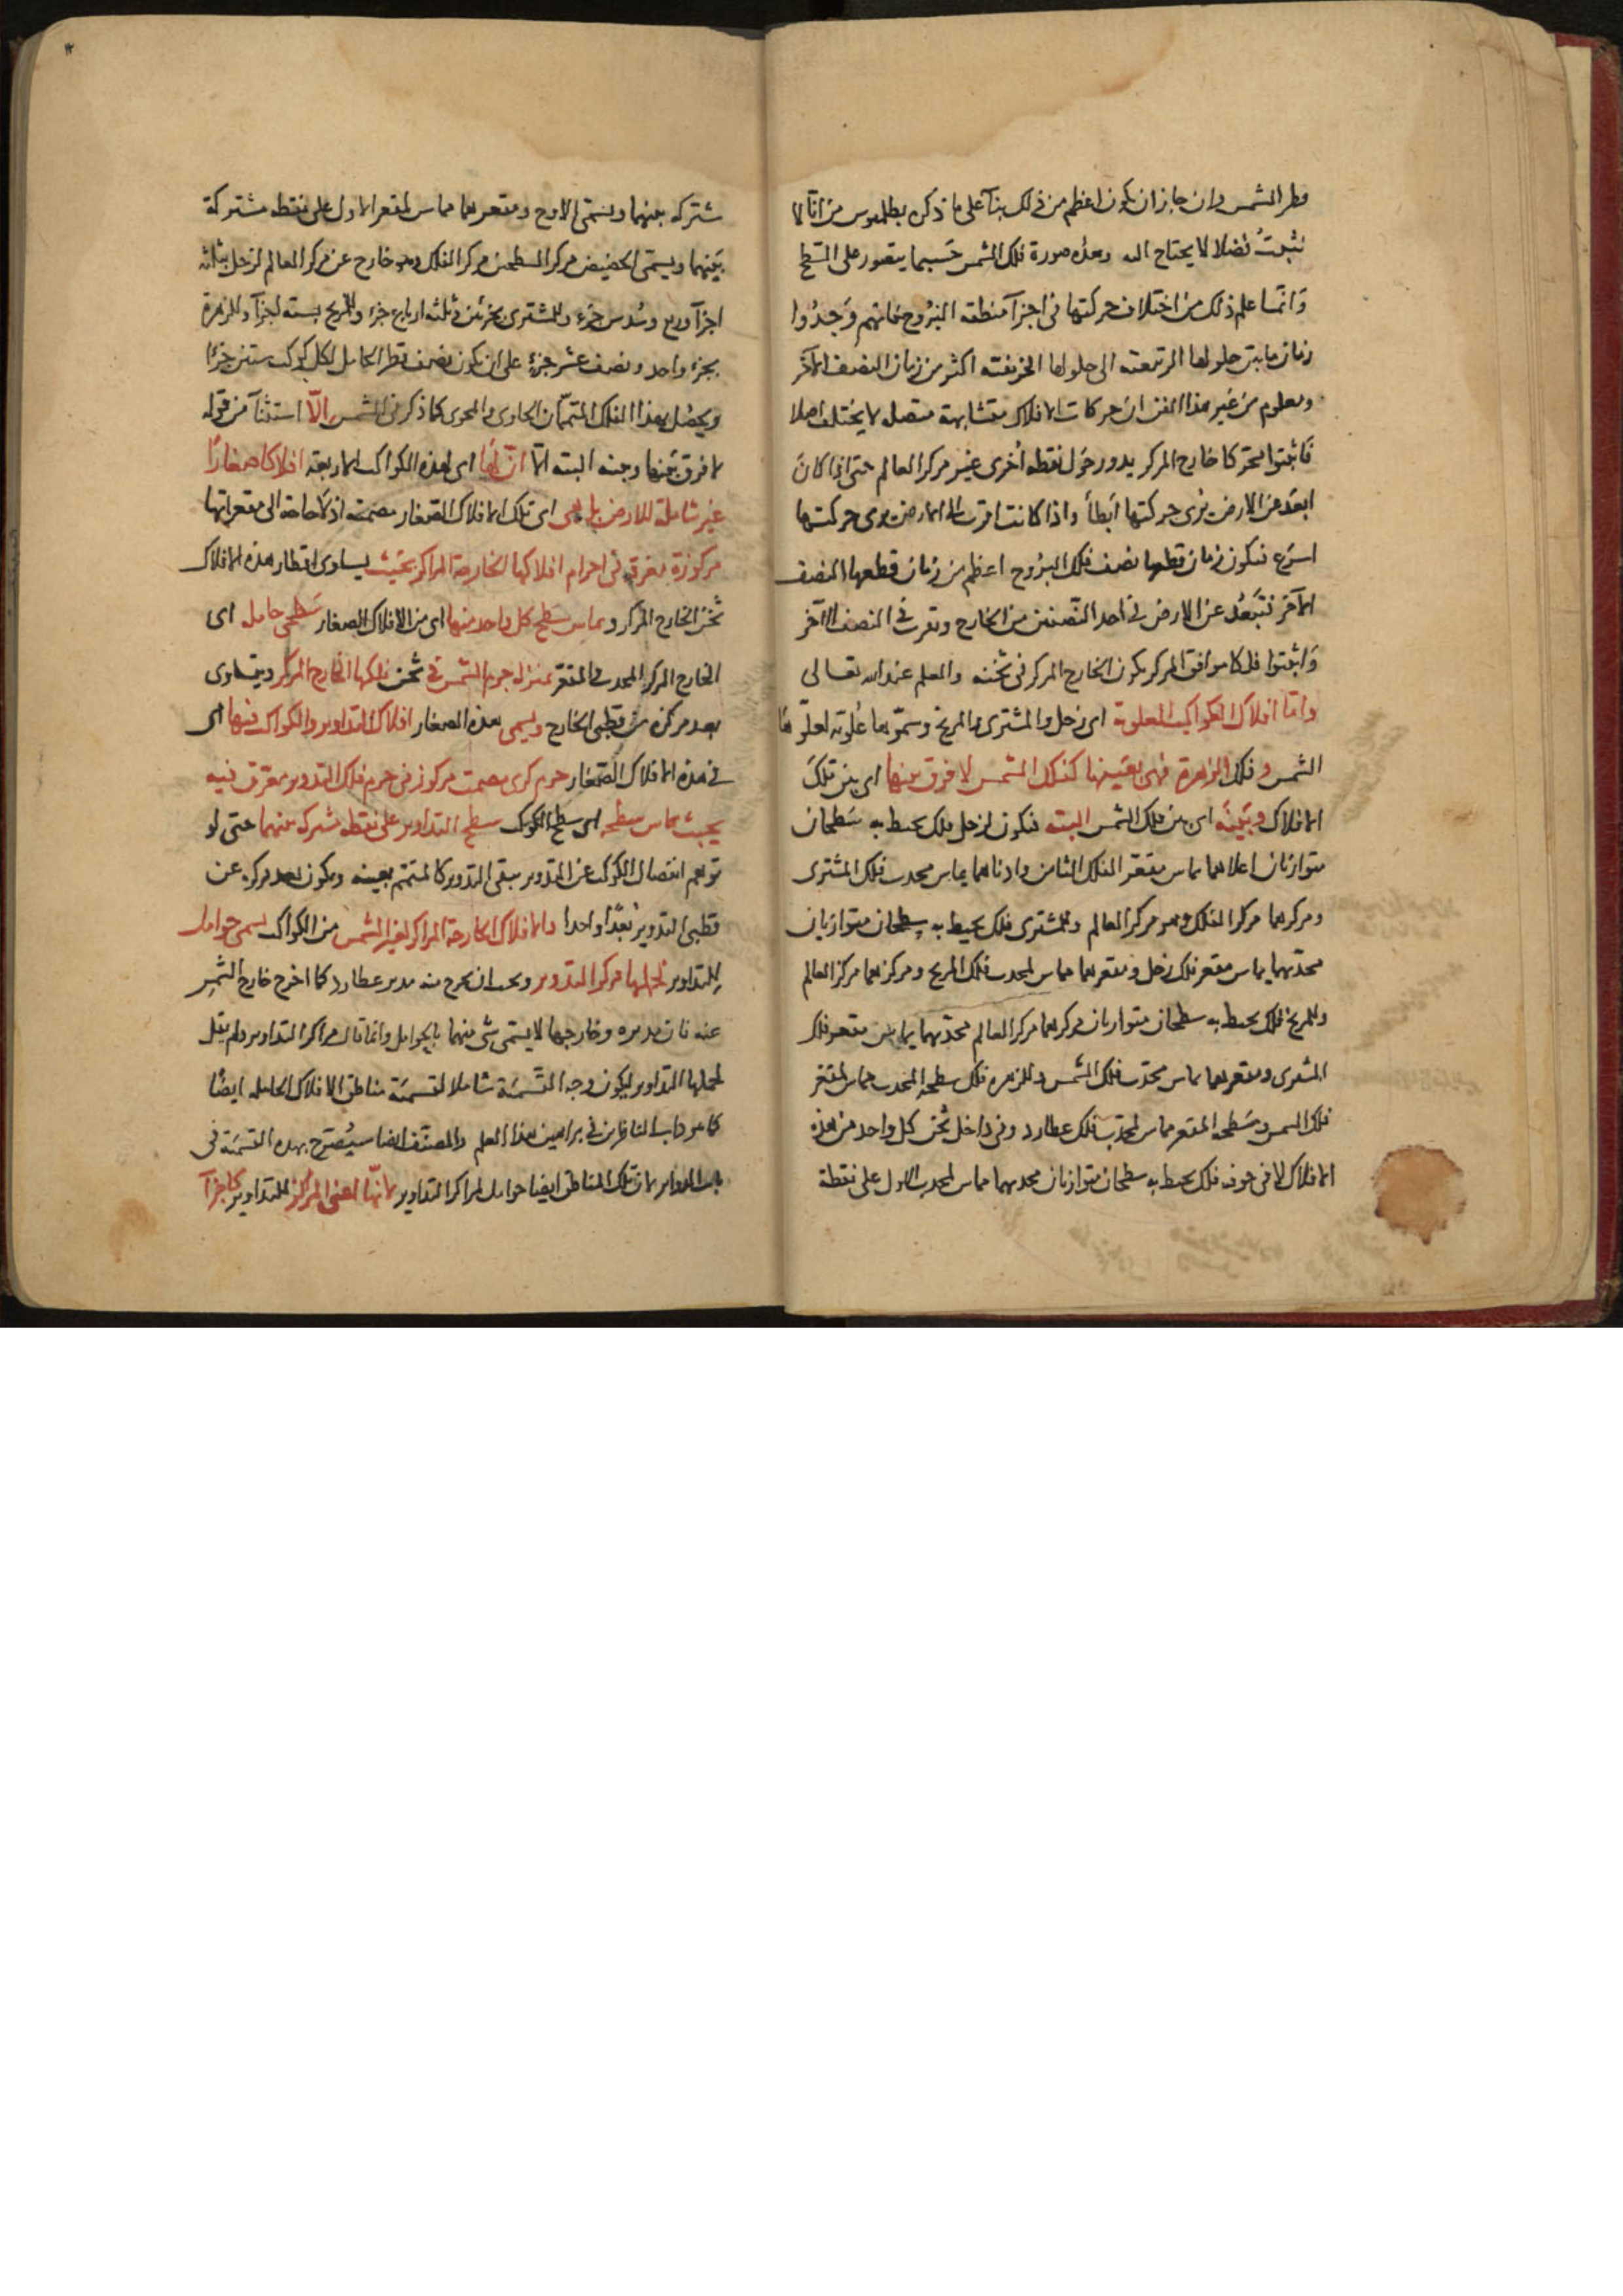 قطر الشمس وان جاز ان يكون اعظم من ذلك بنآ على ما ذكره بطلميوس من انا لا
نثبت فضلا لا يحتاج اليه وهذه صورة فلك الشمس حسبما يتصور على السطح
وانما علم ذلك من اختلاف حركتها فى اجزآ منطقة البروج فانهم وجدوا
زمان ما بين حلولها الربيعية الى حلولها الخريفية اكثر من زمان النصف الآخر
ومعلوم من غير هذا الفن ان حركات الافلاك متشابهة متصلة لا يختلف اصلا
فاثبتوا محركا خارج المركز يدور حول نقطة اخرى غير مركز العالم حتى اذا كان
ابعد من الارض يرى حركتها ابطأ واذا كانت اقرب الى الارض يرى حركتها
اسرع فيكون زمان قطعها نصف فلك البروج اعظم من زمان قطعها النصف
الآخر فتبعد عن الارض فى احد النصفين من الخارج وتقرب فى النصف الآخر
واثبتوا فلكا موافق المركز يكون الخارج المركز فى ثخنه والعلم عند الله تعالى
واما افلاك الكواكب العلوية اى زحل والمشترى والمريخ وسموها علوية لعلوها
الشمس وفلك الزهرة فهى بعينها كفلك الشمس لا فرق بينها اى بين تلك
الافلاك وبينه اى بين فلك الشمس البتة فيكون لزحل فلك يحيط به سطحان
متوازيان اعلاهما يماس مقعر الفلك الثامن وادناهما يماس محدب فلك المشترى
ومركزهما مركز الفلك وهو مركز العالم وللمشترى فلك يحيط به سطحان متوازيان
محدبهما يماس مقعر فلك زحل ومقعرهما مماس لمحدب فلك المريخ ومركزهما مركز العالم
وللمريخ فلك يحيط به سطحان متوازيان مركزهما مركز العالم محدبهما يماس مقعر فلك
المشترى ومقعرهما يماس محدب فلك الشمس وللزهرة فلك سطحه المحدب مماس لمقعر
فلك الشمس وسطحه المقعر مماس لمحدب فلك عطارد وفى داخل ثخن كل واحد من هذه
الافلاك لا فى جوفه فلك يحيط به سطحان متوازيان محدبهما مماس لمحدب الاول على نقطة
شتركه بينهما ويسمى الاوج ومقعرهما مماس لمقعر الاول على نقطة مشتركة
بينهما ويسمى الحضيض مركز السطحين مركز الفلك وهو خارج عن مركز العالم لزحل بثلثة
اجزآ وربع وسدس جزء وللمشترى بجزئين وثلثة ارباع جزء وللمريخ بستة اجزآ وللزهرة
بجزء واحد ونصف عشر جزء على ان يكون نصف قطر الحامل لكل كوكب ستين جزءا
ويحصل بهذا الفلك المتممان الحاوى والمحوى كما ذكر فى الشمس الّا استثنآ من قوله
لا فرق بينها وبينه البتة الا انّ لها اى لهذه الكواكب الاربعة افلاكا صغارا
غير شاملة للارض بل هى اى تلك الافلاك الصغار مصمتة اذ لا حاجة الى مقعراتها
مركوزة مغرقة فى اجرام افلاكها الخارجة المراكز بحيث يساوى اقطار هذه الافلاك
ثخن الخارج المركز ويماس سطح كل واحد منها اى من الافلاك الصغار سطحى حامله اى
الخارج المركز المحدب والمقعر بمنزلة جرم الشمس فى ثخن فلكها الخارج المركز ويتساوى
بعد مركزه من قطبى الخارج ويسمى هذه الصغار افلاك التداوير والكواكب فيها اى
فى هذه الافلاك الصغار جرم كرى مصمت مركوز فى جرم فلك التدوير مغرق فيه
بحيث يماس سطحه اى سطح الكوكب سطح التداوير على نقطة مشتركه بينهما حتى لو
توهم انفصال الكوكب عن التدوير بقى التدوير كالمتمم بعينه ويكون بعد مركزه عن
قطبى التدوير بعدا واحدا والافلاك الخارجة المراكز لغير الشمس من الكواكب يسمى حوامل
للتداوير لحملها مركز التدوير ويجب ان يخرج منه مدير عطارد كما اخرج خارج الشمس
عنه فان مديره وخارجها لا يسمى شئ منهما بالحوامل وانما قال مراكز التداوير ولم يقل
لحملها التداوير ليكون وجه التسمية شاملا لتسمية مناطق الافلاك الحاملة ايضا
كما هو داب الناظرين فى براهين هذا العلم والمصنف ايضا سيصرح بهذه التسمية فى
باب الدواير لان تلك المناطق ايضا حوامل لمراكز التداوير لانها اعنى المراكز للتداوير كاجزآ